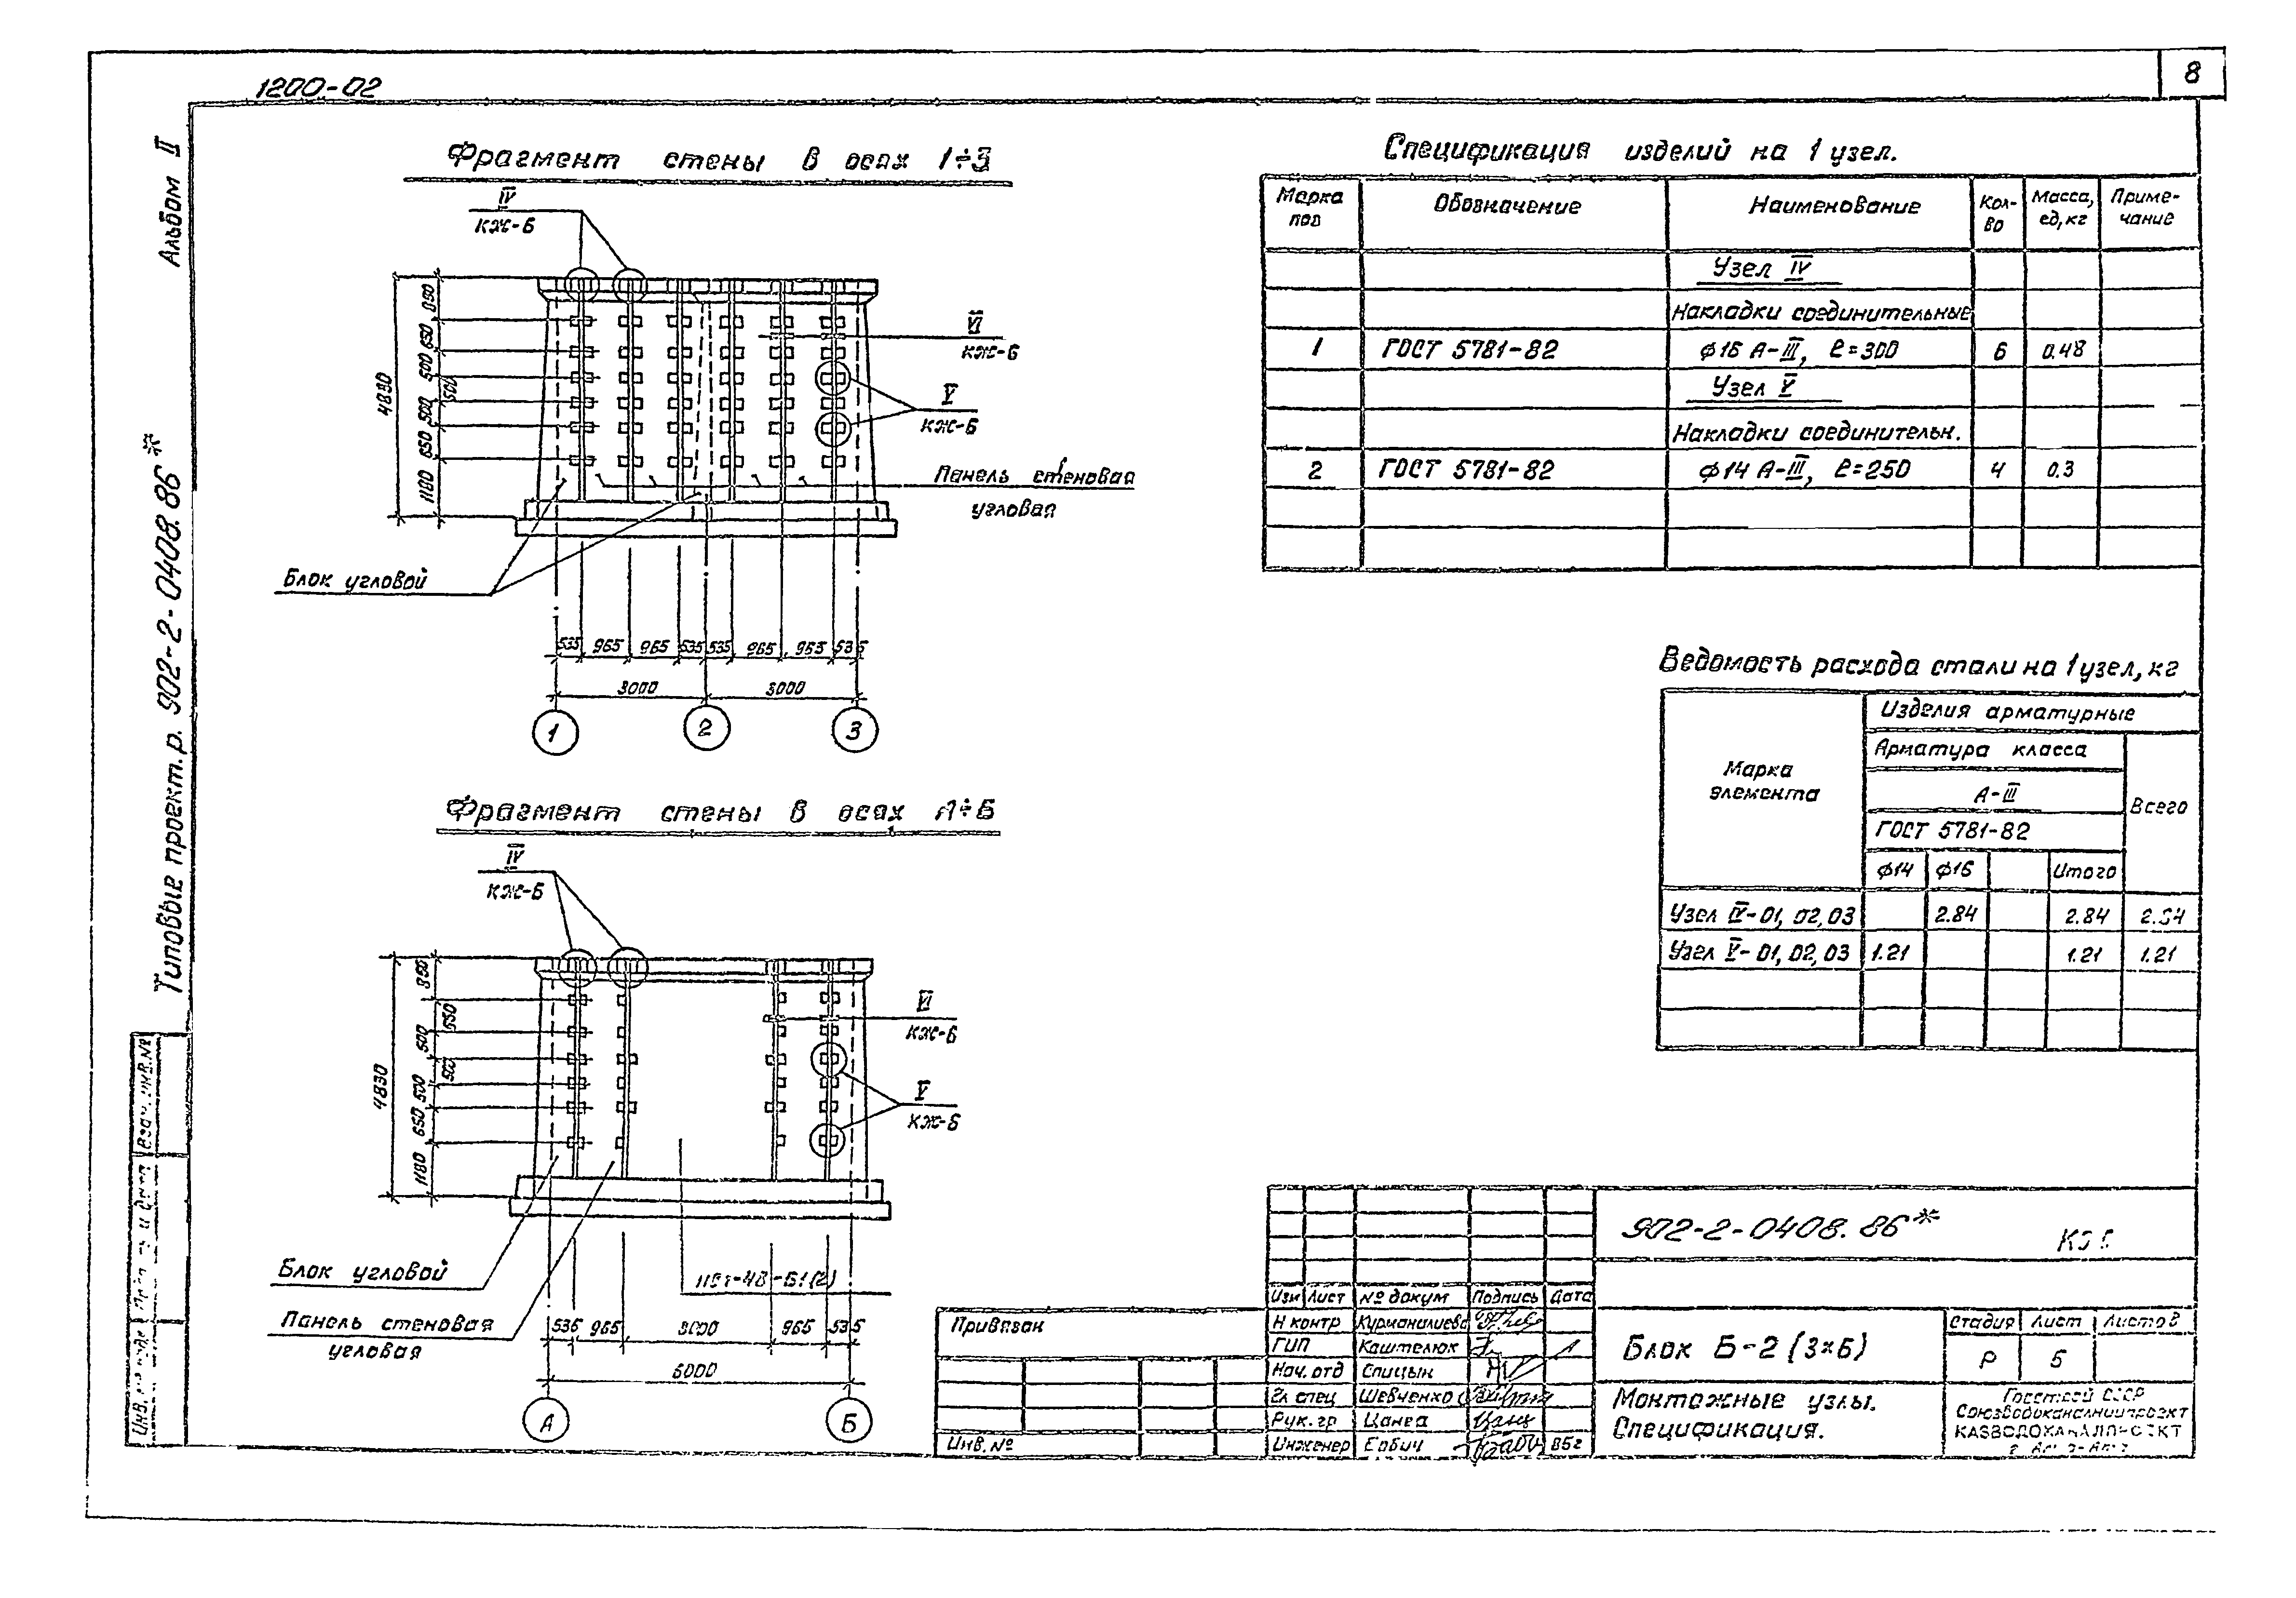 1200-02
8
Альбом II
Типовые проект. р. 902-2-0408.86*
Фрагмент стены в осях 1÷3
IV
КЖ-6
VI
КЖ-6
V
КЖ-6
Панель стеновая
угловая
Блок угловой
4830
850
650
500
500
500
650
1180
535 965 965 535 535 965 965 535
3000 3000
1 2 3
Фрагмент стены в осях А÷Б
IV
КЖ-6
VI
КЖ-6
V
КЖ-6
4830
850
650
500
500
500
650
1180
Блок угловой
Панель стеновая
угловая
535 965 3000 965 535
6000
А Б
Спецификация изделий на 1 узел.
Марка поз Обозначение Наименование Кол-во Масса, ед, кг Приме-чание
Узел IV
Накладки соединительные
1 ГОСТ 5781-82 ф16 А-III, ℓ=300 6 0.48
Узел V
Накладки соединительн.
2 ГОСТ 5781-82 ф14 А-III, ℓ=250 4 0.3
Ведомость расхода стали на 1 узел, кг
Марка элемента
Изделия арматурные
Арматура класса
А-III
ГОСТ 5781-82
Всего
ф14 ф16 Итого
Узел IV-01, 02, 03 2.84 2.84 2.84
Узел V-01, 02, 03 1.21 1.21 1.21
902-2-0408.86*
Изм Лист № докум Подпись Дата
Н контр Курманалиева
ГИП Каштелюк
Нач. отд Спицын
Гл спец Шевченко
Рук. гр Цанга
Инженер Бабич 85г
Привязан
Инв. №
Блок Б-2 (3×6)
Стадия Лист Листов
Р 5
Монтажные узлы.
Спецификация.
Госстрой СССР
Союзводоканалниипроект
КАЗВОДОКАНАЛПРОЕКТ
Взам. инв. №